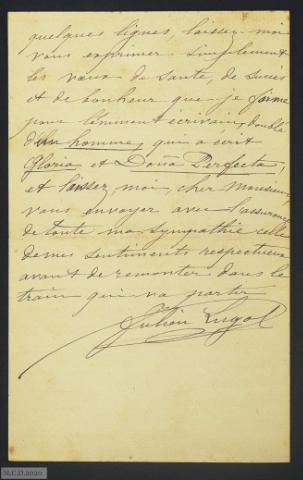 quelques lignes, laissez-moi
vous exprimer simplement
les vœux de santé, de succès
et de bonheur que je forme
pour l'éminent écrivain, doublé
d'un homme, qui a écrit
Gloria et Doña Perfecta,
et laissez moi, cher Monsieur,
vous envoyer avec l'assurance
de toute ma sympathie celle
de mes sentiments respectueux
avant de remonter dans le
train qui va partir
Julien Lugol
M.C.D.2020